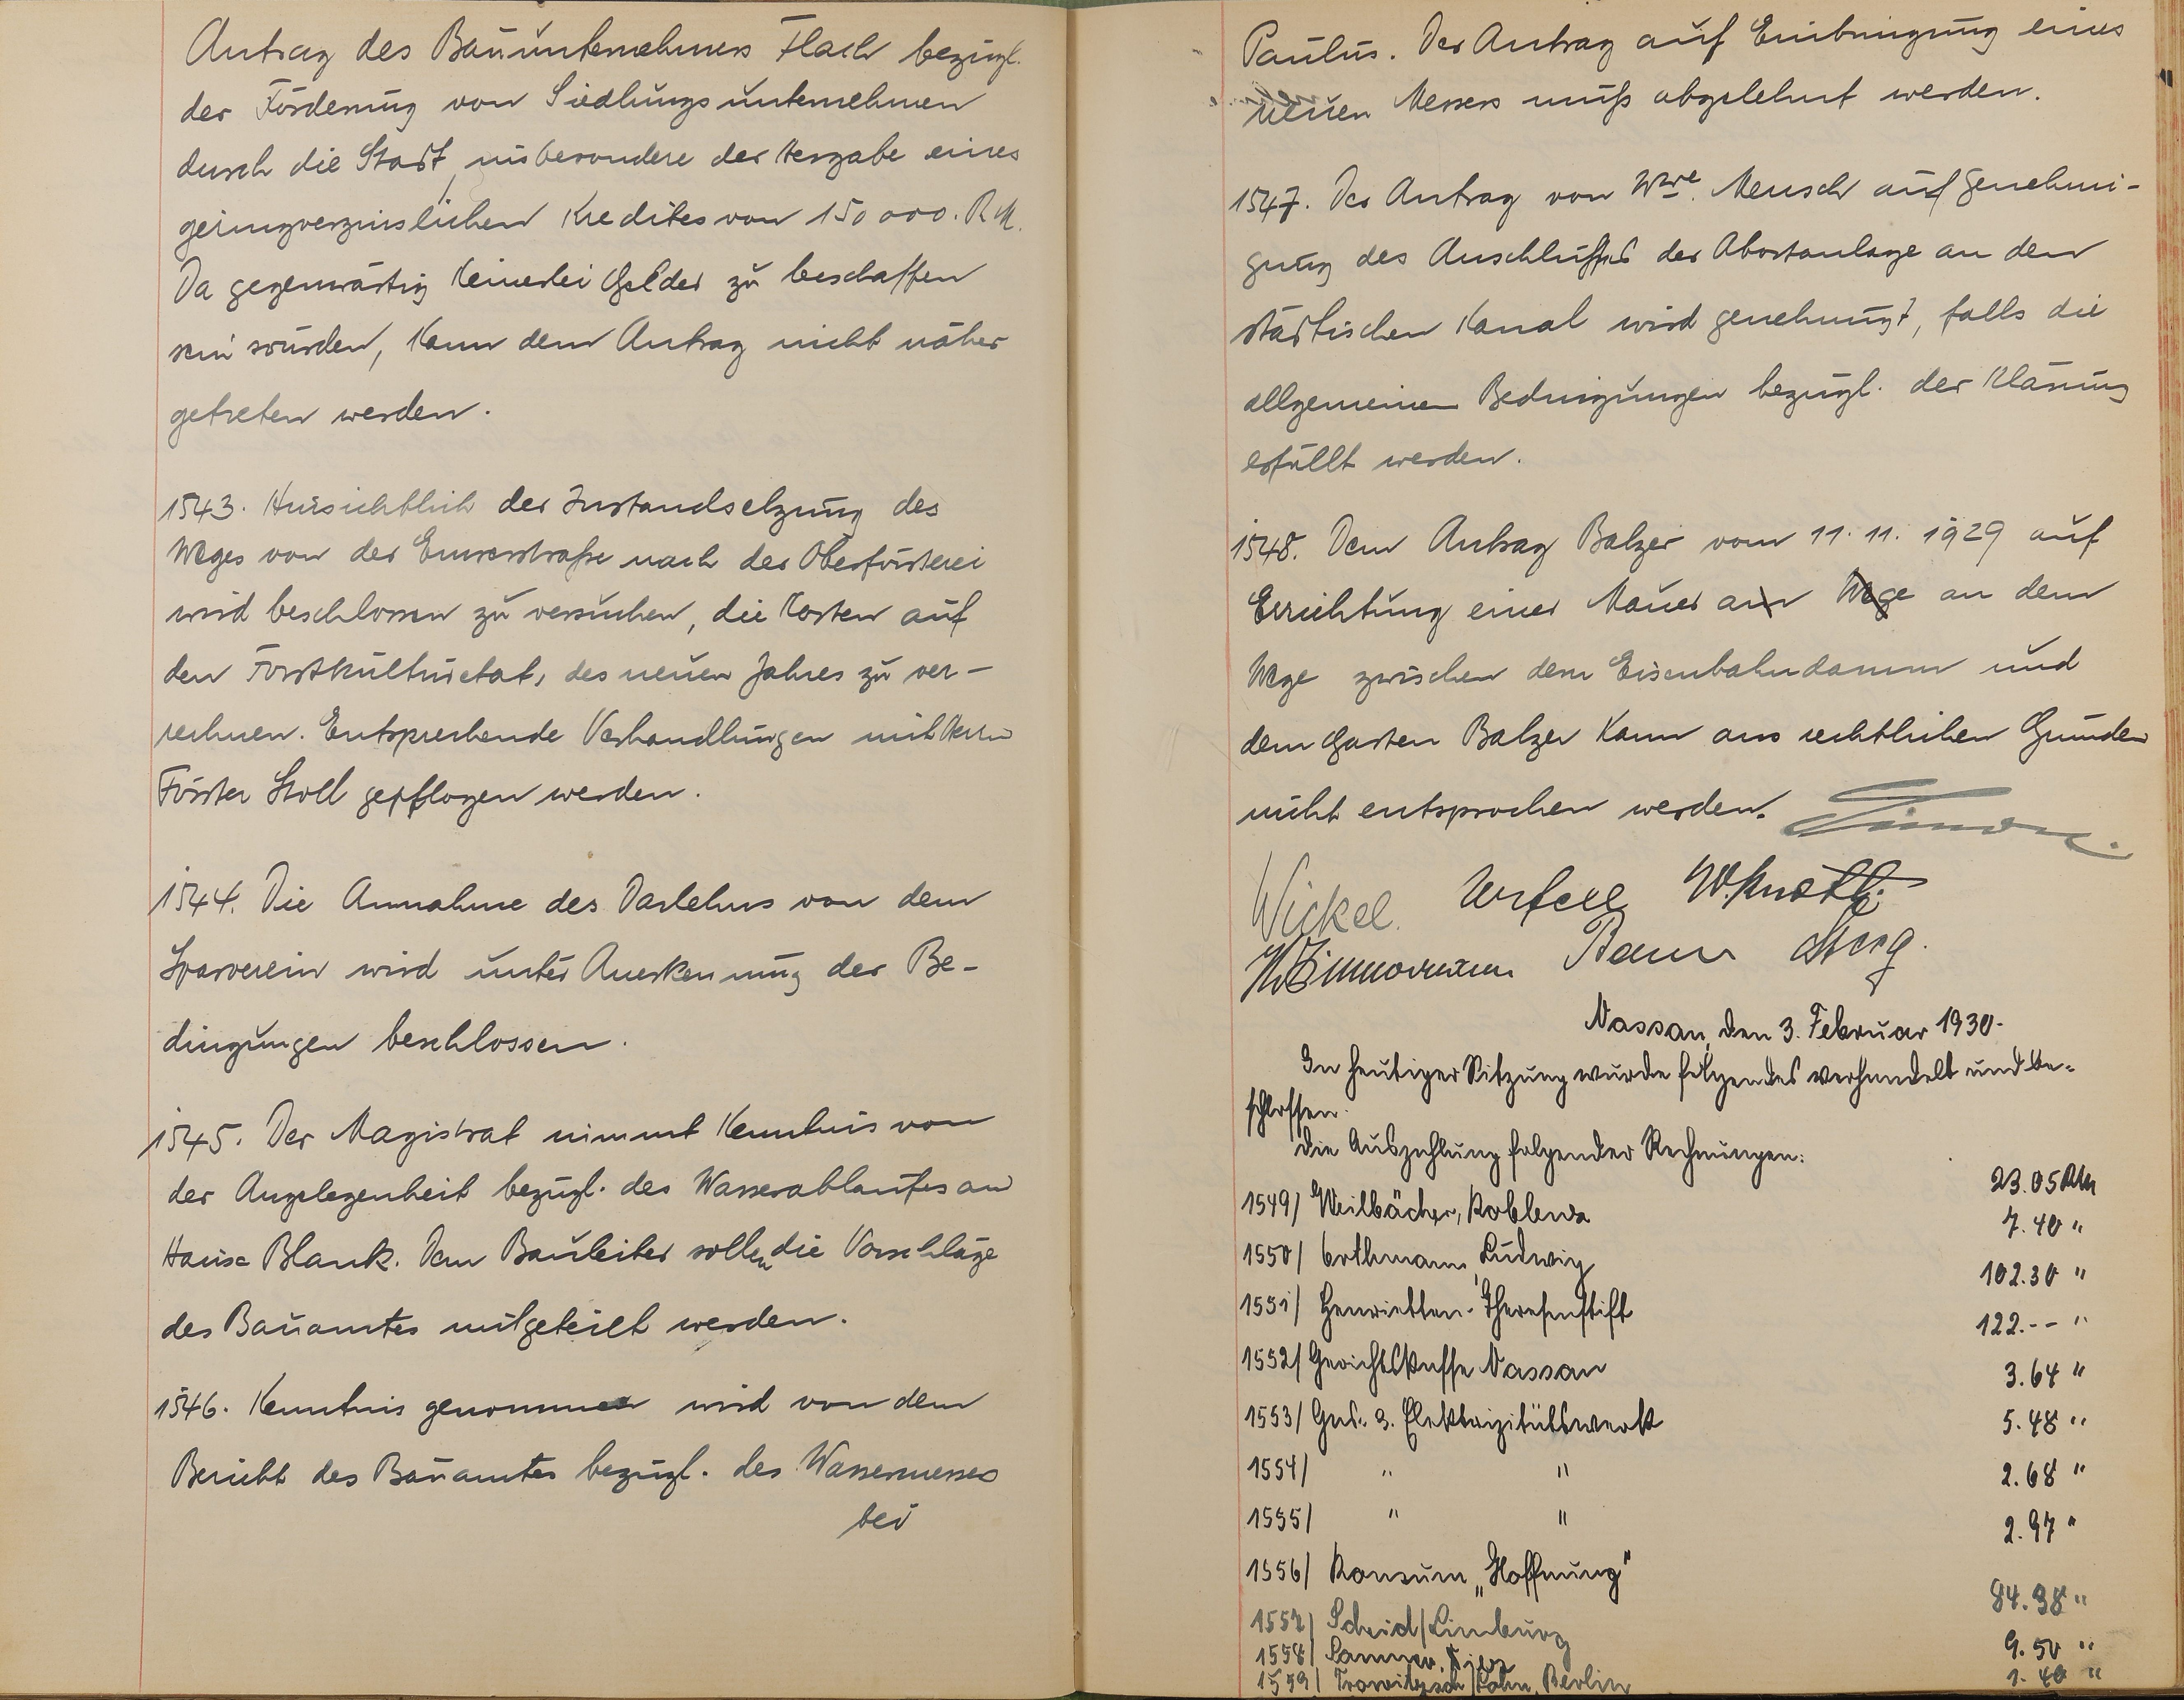 Antrag des Bauunternehmers Flach bezügl.
der Förderung von Siedlungsunternehmen
durch die Stadt, insbesondere der Hergabe eines
geringverzinslichen Kredites von 150 000. RM.
Da gegenwärtig keinerlei Gelder zu beschaffen
sein würden, kann dem Antrag nicht näher
getreten werden.
1543. Hinsichtlich der Instandsetzung des
Weges von der Emserstraße nach der Oberförsterei
wird beschlossen zu versuchen, die Kosten auf
den Forstkulturetat, des neuen Jahres zu ver-
rechnen. Entsprechende Verhandlungen mit Herrn
Förster Stoll gepflogen werden.
1544. Die Annahme des Darlehns von dem
Sparverein wird unter Anerkennung der Be-
dingungen beschlossen.
1545. Der Magistrat nimmt Kenntnis von
der Angelegenheit bezügl. des Wasserablaufes am
Hause Blank. Dem Bauleiter sollen die Vorschläge
des Bauamtes mitgeteilt werden.
1546. Kenntnis genommen wird von dem
Bericht des Bauamtes bezügl. des Wassermessers
bei
Paulus. Der Antrag auf Einbringung eines
neuen Messers muß abgelehnt werden.
1547. Der Antrag von Wwe. Mensch auf Genehmi-
gung des Anschlußes der Abortanlage an den
städtischen Kanal wird genehmigt, falls die
allgemeinen Bedingungen bezügl. der Klärung
erfüllt werden.
1548. Dem Antrag Balzer vom 11. 11. 1929 auf
Errichtung einer Mauer am Wege an dem
Wege zwischen dem Eisenbahndamm und
dem Garten Balzer kann aus rechtlichen Gründen
nicht entsprochen werden. Simon.
Wickel. W. Knoth.
W Zimmermann Baum Herg.
Nassau, den 3. Februar 1930.
In heutiger Sitzung wurde folgendes verhandelt und be-
schlossen.
Die Auszahlung folgender Rechnungen:
1549/ Weilbächer, Koblenz 23.05 RM
1550/ Ludwig 7.40 "
1551/ Henrietten-Theresenstift 102.30 "
1552/ Gerichtskasse Nassau 122.-- "
1553/ Gas- u. Elektrizitätswerk 3.64 "
1554/ " " 5.48 "
1555/ " " 2.68 "
1556/ Konsum „Hoffnung" 2.97 "
1557/ Scheid/Limburg 84.38 "
1558/ Sommer, Diez 9.50 "
1559/ Trowitzsch/Sohn, Berlin 1.40 "